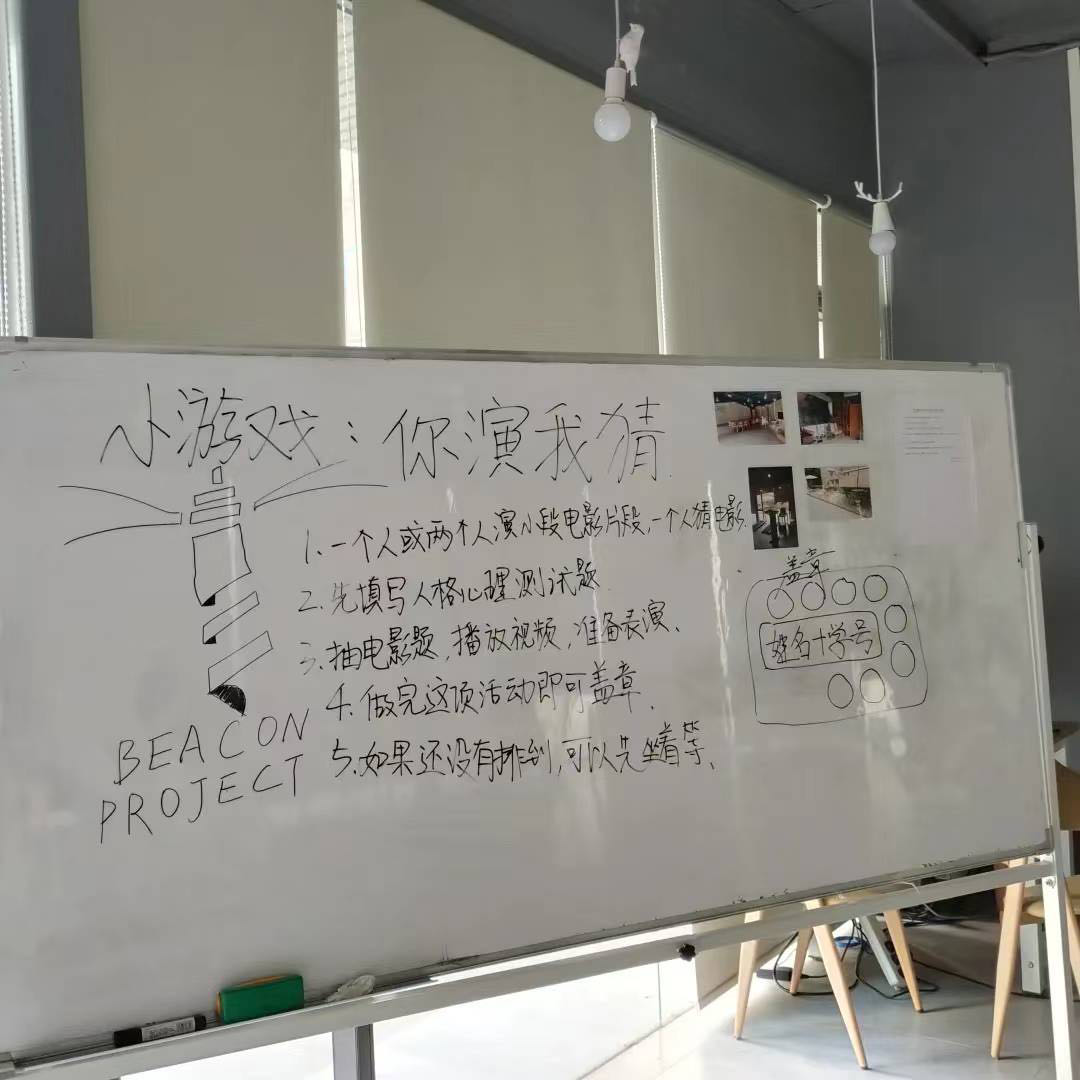 小游戏：你演我猜
1. 一个人或两个人演小段电影片段，一个人猜电影.
2. 先填写人格心理测试题
3. 抽电影题，播放视频，准备表演、
4. 做完这项活动即可盖章、
5. 如果还没有排到，可以先坐着等、
BEACON
PROJECT
盖章
姓名+学号